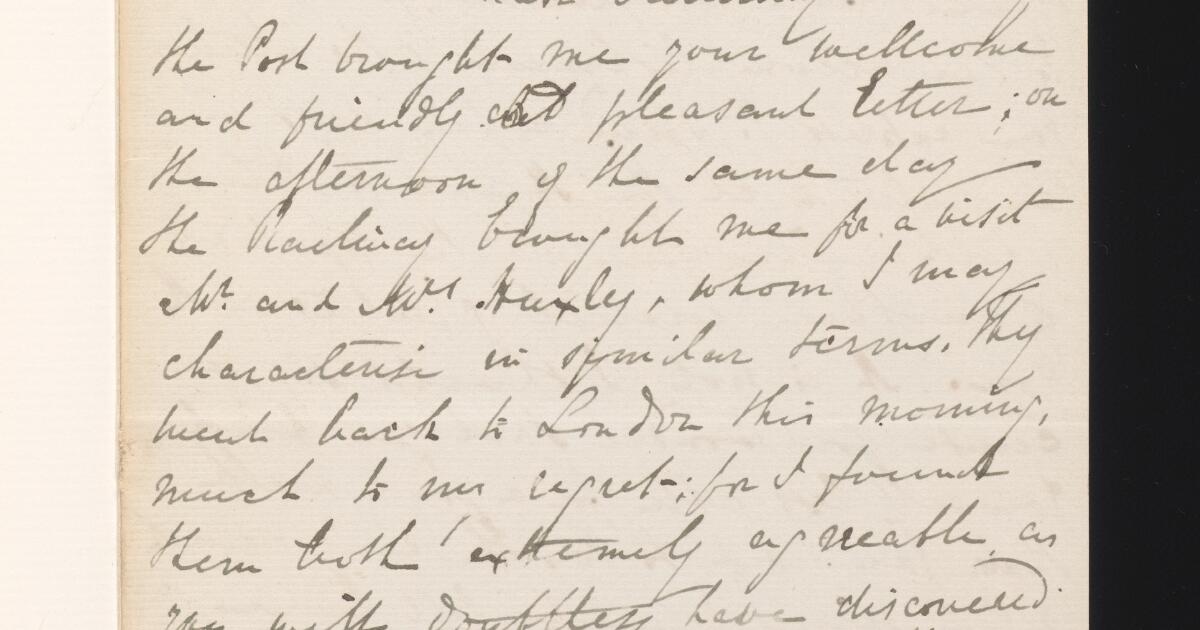 the Post brought me your wellcome
and friendly and pleasant letter; on
the afternoon of the same day
the Railway brought me for a visit
Mr. and Mrs. Huxley, whom I may
characterise in similar terms. They
went back to London this morning,
much to my regret; for I found
them both extremely agreeable, as
you will doubtless have discovered